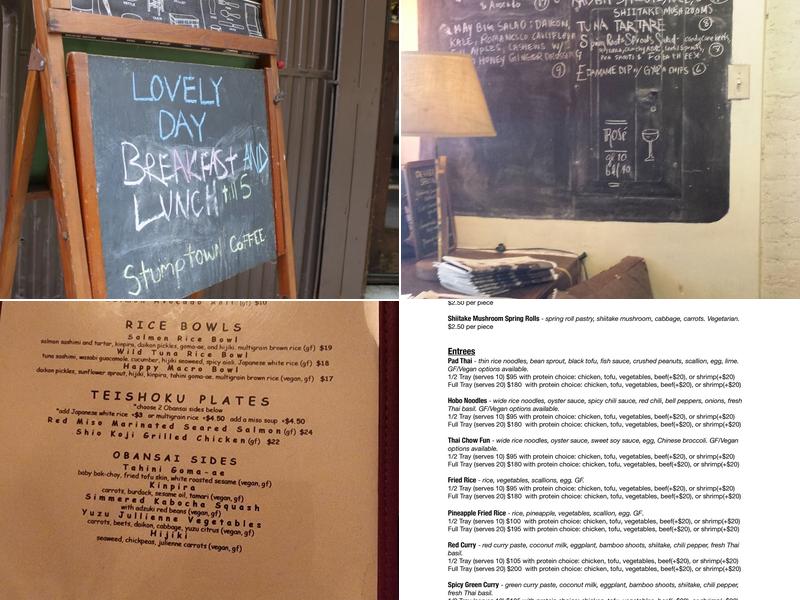 LOVELY
DAY
BREAKFAST AND
LUNCH till 5
Stumptown COFFEE
& Avocado (17)
SHIITAKE MUSHROOMS
TUNA TARTARE (8)
MAY BIG SALAD: DAIKON,
KALE, ROMANESCO CAULIFLOWER
APPLES, CASHEWS W/
HONEY GINGER DRESSING
(9)
EDAMAME DIP w/ GYOZA CHIPS (6)
ROSÉ
gl 10
btl 40
RICE BOWLS
Salmon Rice Bowl
salmon sashimi and tartar, kinpira, daikon pickles, goma-ae, and hijiki. multigrain brown rice (gf) $19
Wild Tuna Rice Bowl
tuna sashimi, wasabi guacamole, cucumber, hijiki seaweed, spicy aioli. Japanese white rice (gf) $18
Happy Macro Bowl
daikon pickles, sunflower sprout, hijiki, kinpira, tahini goma-ae. multigrain brown rice (vegan, gf) $17
TEISHOKU PLATES
*choose 2 Obansai sides below
*add Japanese white rice +$3 or multigrain rice +4.50 add a miso soup +4.50
Red Miso Marinated Seared Salmon (gf) $24
Shio Koji Grilled Chicken (gf) $22
OBANSAI SIDES
Tahini Goma-ae
baby bok-choy, fried tofu skin, white roasted sesame (vegan, gf)
Kinpira
carrots, burdock, sesame oil, tamari (vegan, gf)
Simmered Kabocha Squash
with adzuki red beans (vegan, gf)
Yuzu Jullienne Vegetables
carrots, beets, daikon, cabbage, yuzu citrus (vegan, gf)
Hijiki
seaweed, chickpeas, julienne carrots (vegan, gf)
$2.50 per piece
Shiitake Mushroom Spring Rolls - spring roll pastry, shiitake mushroom, cabbage, carrots. Vegetarian.
$2.50 per piece
Entrees
Pad Thai - thin rice noodles, bean sprout, black tofu, fish sauce, crushed peanuts, scallion, egg, lime.
GF/Vegan options available.
1/2 Tray (serves 10) $95 with protein choice: chicken, tofu, vegetables, beef(+$20), or shrimp(+$20)
Full Tray (serves 20) $180 with protein choice: chicken, tofu, vegetables, beef(+$20), or shrimp(+$20)
Hobo Noodles - wide rice noodles, oyster sauce, spicy chili sauce, red chili, bell peppers, onions, fresh
Thai basil. GF/Vegan options available.
1/2 Tray (serves 10) $95 with protein choice: chicken, tofu, vegetables, beef(+$20), or shrimp(+$20)
Full Tray (serves 20) $180 with protein choice: chicken, tofu, vegetables, beef(+$20), or shrimp(+$20)
Thai Chow Fun - wide rice noodles, oyster sauce, sweet soy sauce, egg, Chinese broccoli. GF/Vegan
options available.
1/2 Tray (serves 10) $95 with protein choice: chicken, tofu, vegetables, beef(+$20), or shrimp(+$20)
Full Tray (serves 20) $180 with protein choice: chicken, tofu, vegetables, beef(+$20), or shrimp(+$20)
Fried Rice - rice, vegetables, scallions, egg. GF.
1/2 Tray (serves 10) $95 with protein choice: chicken, tofu, vegetables, beef(+$20), or shrimp(+$20)
Full Tray (serves 20) $180 with protein choice: chicken, tofu, vegetables, beef(+$20), or shrimp(+$20)
Pineapple Fried Rice - rice, pineapple, vegetables, scallion, egg, GF.
1/2 Tray (serves 10) $100 with protein choice: chicken, tofu, vegetables, beef(+$20), or shrimp(+$20)
Full Tray (serves 20) $195 with protein choice: chicken, tofu, vegetables, beef(+$20), or shrimp(+$20)
Red Curry - red curry paste, coconut milk, eggplant, bamboo shoots, shiitake, chili pepper, fresh Thai
basil.
1/2 Tray (serves 10) $105 with protein choice: chicken, tofu, vegetables, beef(+$20), or shrimp(+$20)
Full Tray (serves 20) $200 with protein choice: chicken, tofu, vegetables, beef(+$20), or shrimp(+$20)
Spicy Green Curry - green curry paste, coconut milk, eggplant, bamboo shoots, shiitake, chili pepper,
fresh Thai basil.